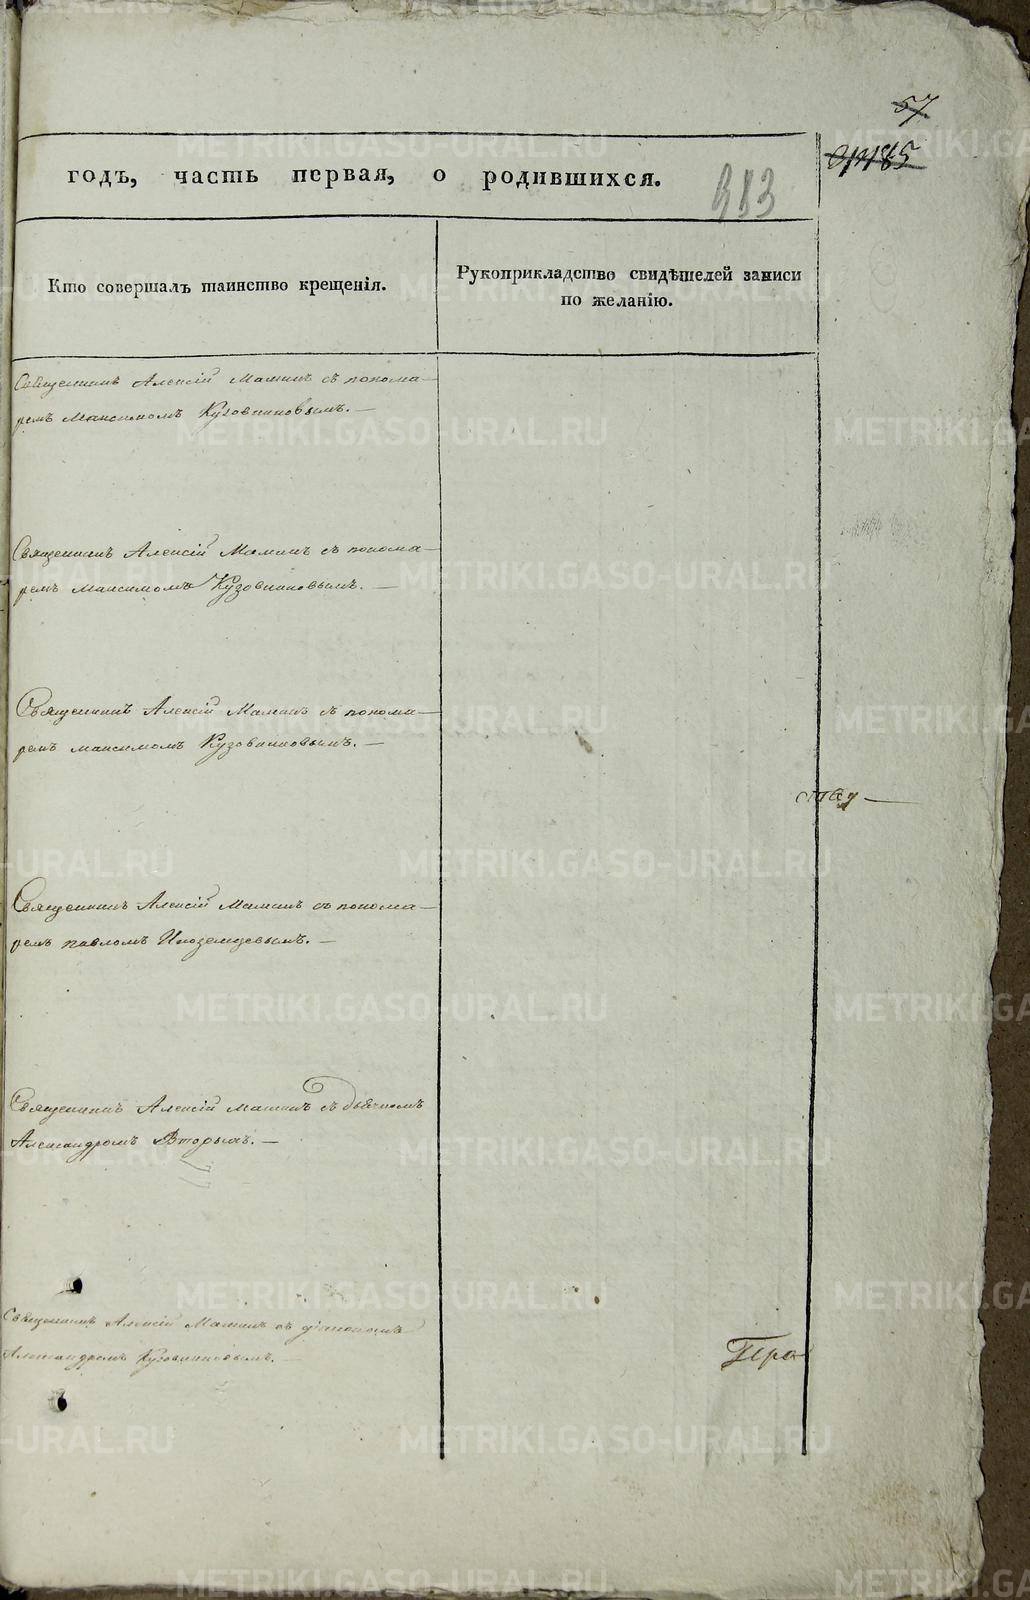 57
годъ, часть первая, о родившихся.
Кто совершалъ таинство крещенія.
Рукоприкладство свидѣтелей записи
по желанію.
Священникъ Алексій Маминъ съ понома-
ремъ Максимомъ Кузовниковымъ. —
Священникъ Алексій Маминъ съ понома-
ремъ Максимомъ Кузовниковымъ. —
Священникъ Алексій Маминъ съ понома-
ремъ Максимомъ Кузовниковымъ. —
Священникъ Алексій Маминъ съ понома-
ремъ Павломъ Иноземцевымъ. —
Священникъ Алексій Маминъ съ дьячкомъ
Александромъ Вторымъ. —
Священникъ Алексій Маминъ съ діакономъ
Александромъ Кузовниковымъ. —
METRIKI.GASO-URAL.RU